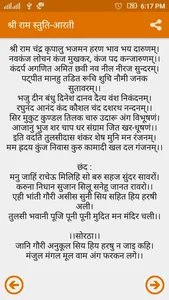 6:17 PM
श्री राम स्तुति-आरती
श्री राम चंद्र कृपालु भजमन हरण भाव भय दारुणम्।
नवकंज लोचन कंज मुखकर, कंज पद कन्जारुणम्।।
कंदर्प अगणित अमित छवी नव नील नीरज सुन्दरम्।
पट्पीत मानहु तडित रूचि शुचि नौमी जनक
सुतावरम्।।
भजु दीन बंधु दिनेश दानव दैत्य वंश निकंदनम्।
रघुनंद आनंद कंद कौशल चंद दशरथ नन्दनम्।।
सिर मुकुट कुण्डल तिलक चारु उदारु अंग विभूषणं।
आजानु भुज शर चाप धर संग्राम जित खर-धूषणं।।
इति वदति तुलसीदास शंकर शेष मुनि मन रंजनम्।
मम ह्रदय कुंज निवास कुरु कामादी खल दल गंजनम्।।
छंद :
मनु जाहिं राचेऊ मिलिहि सो बरु सहज सुंदर सावरों।
करुना निधान सुजान सिलू सनेहू जानत रावरो।।
एही भांती गौरी असीस सुनी सिय सहित हिय हरषी
अली।
तुलसी भवानी पूजि पूनी पूनी मुदित मन मंदिर चली।।
।।सोरठा।।
जानि गौरी अनुकूल सिय हिय हरषु न जाइ कहि।
मंजुल मंगल मूल वाम अंग फरकन लगे।।